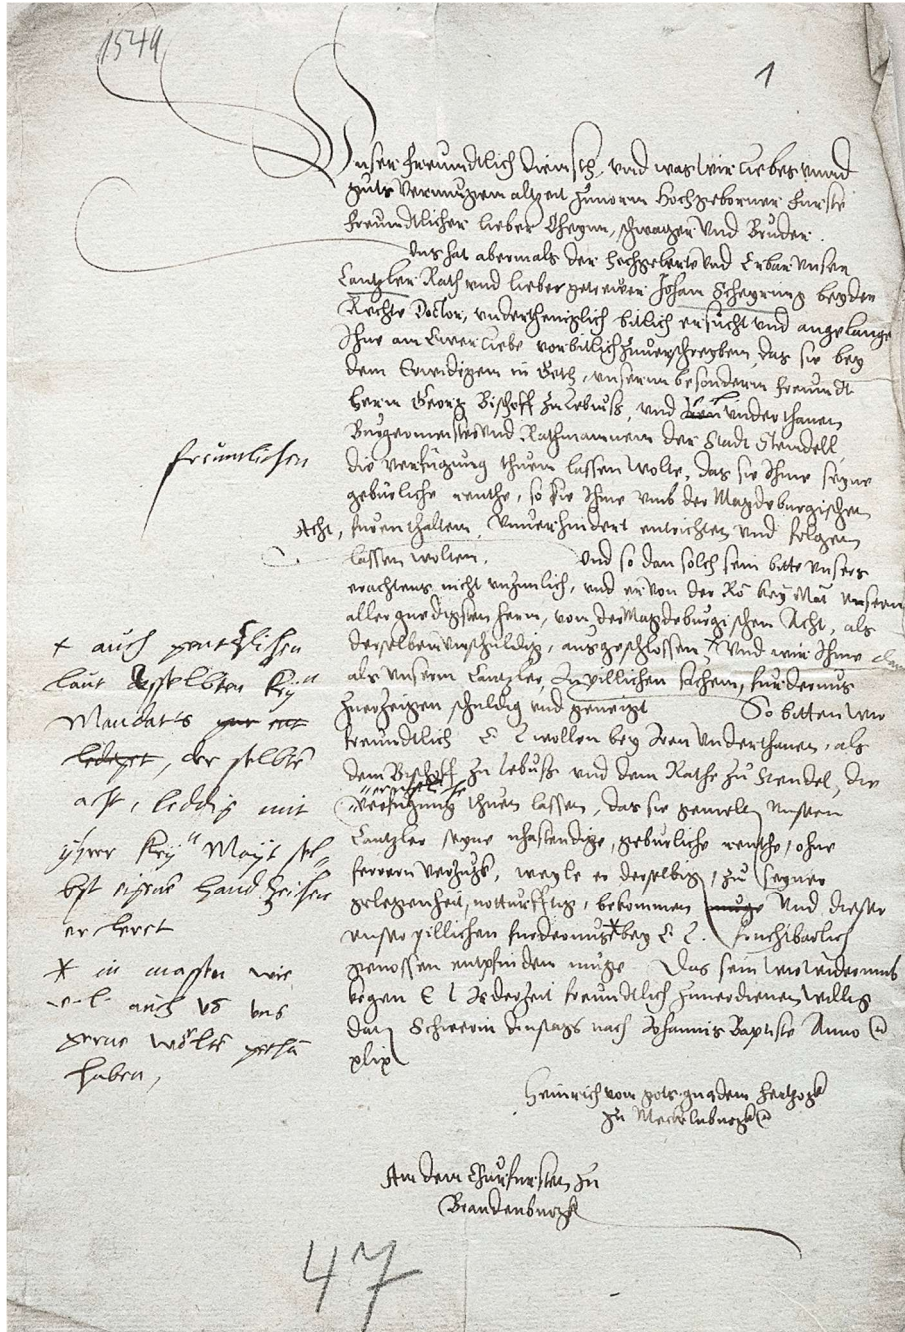 1549
1
Unser freundtlich dienst, und was wir liebes unnd
guts vermugenn altzeit zuuornn Hochgeborner Furste
freundtlicher lieber Ohegm, schwager und Bruder.
Uns hat abermals der hochgelerte und Erbar unser
Cantzler Rath und lieber getrewer Johan Scheyring beyder
Rechte Doctor, underthenigklich bitlich ersucht und angelangt
Ihne an Ewer liebe vorbitlich zuuerschreyben, das sie bey
dem Erwirdigen in Goth, unserm besonderm freundt
Herrn Georg Bischoff zu Lebuß, und underthanen
Burgermeister und Rathmannenn der Stadt Stendell,
freuntlichen
die verfugung thuen lassen wolte, das sie Ihme seyne
geburliche renthe, so sie Ihme umb der Magdeburgischen
Acht, furenthalten, unuerhindert entrichten und folgen
lassen wolten. Und so dan solch sein bitte unsers
erachtens nicht unzimlich, und er von der Ro Key Mat unserm
allergnedigsten hern, von der Magdeburgischen Acht, als
derselben unschuldig, ausgeschlossen, + Und wir Ihme
als unserm Cantzler, In pillichen sachenn, furdernus
zuerzeigen schuldig und geneigt So bitten wir
freundtlich E L wollen bey Iren underthanen, als
dem Bischoff zu Lebuß und dem Rathe zu Stendel, die
verfugung thuen lassen, das sie gemelten unserm
Cantzler seyne geburliche renthe, ohne
ferrern verzugk, weyle er derselbig, zu seyner
gelegenheit, notturfftig, bekommen muge Und dieser
unser pillichen furdernus * bey E L. fruchtbarlich
genossen entpfinden muge Das sein wir widerumb
kegen E L Jederzeit freundtlich zuuerdienen willig
Dat Schwerin dinstags nach Johannis Baptiste Anno
xlix
+ auch gentzlichen
laut desselbten Key
Mandatts
ledeget, der selbte
acht, leddig mit
yhrer Key Mayt sel-
bst eigene hand zeichen
erkleret
* in massen wie
e. l. auch von uns
gerne wolte gethan
haben,
Heinrich von gots gnaden Hertzogk
zu Meckelnburgk
An den Churfursten zu
Brandenburgk
47